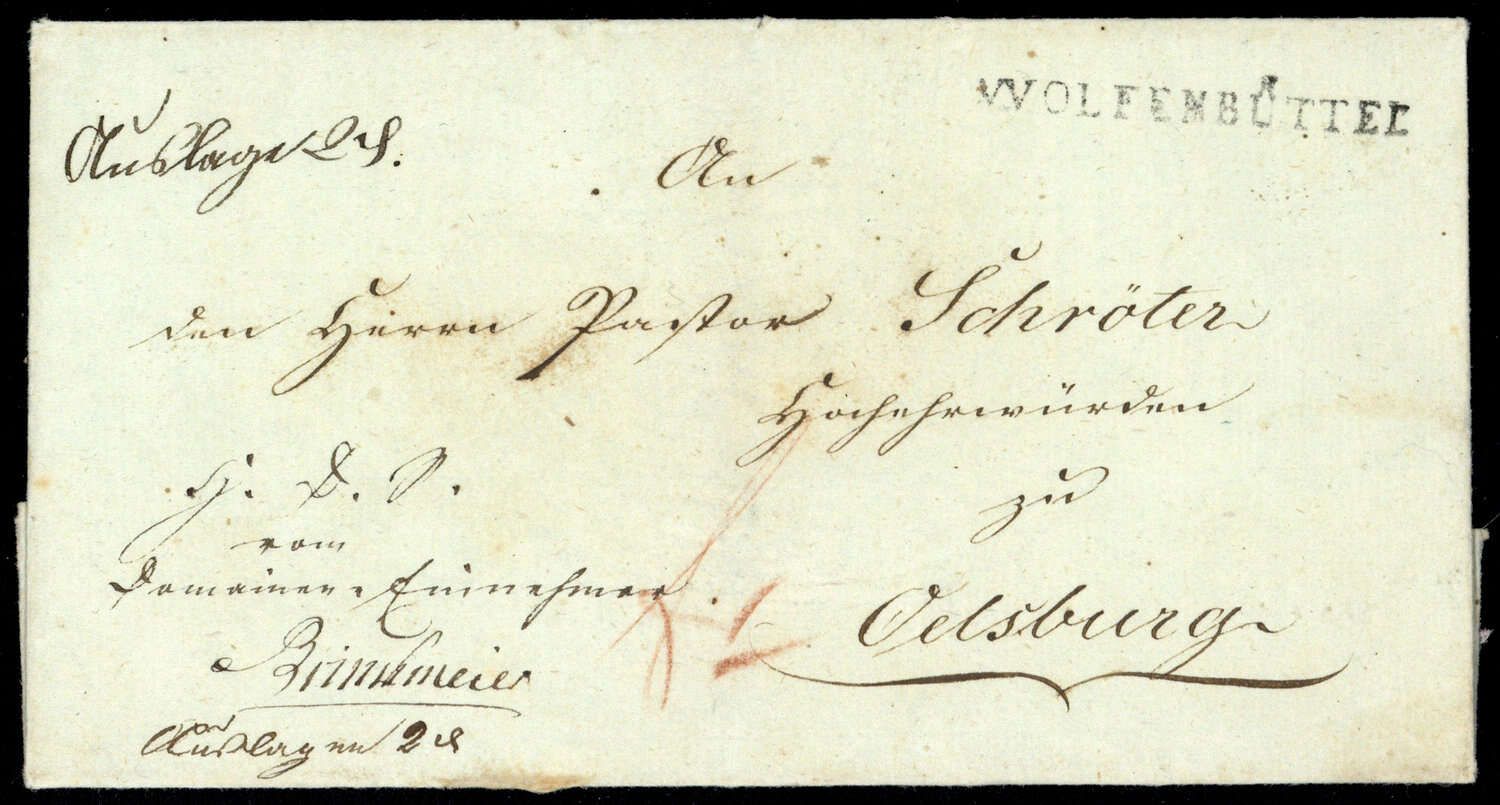 WOLFENBÜTTEL
Auslage 2 d.
An
den Herrn Pastor Schröter
Hochehrwürden
zu
Oelsburg
H. D. S.
vom
Domainen-Einnehmer
Brinckmeier
Auslagen 2 d